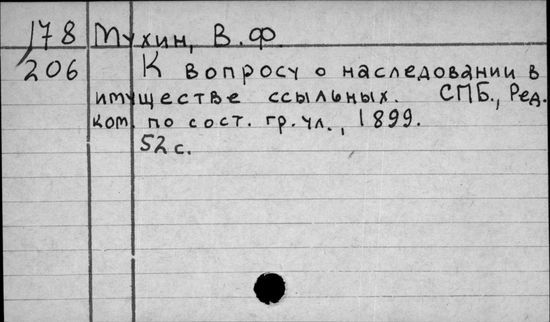 178 Мухин, В.Ф.
206 К вопросу о наследовании в
имуществе ссыльных. СПБ., Ред.
ком. по сост. гр. ул., 1899.
52 с.